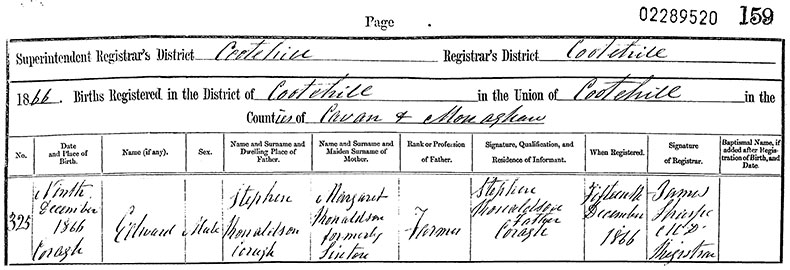 Page
02289520 159
Superintendent Registrar's District Cootehill Registrar's District Cootehill
1866. Births Registered in the District of Cootehill in the Union of Cootehill in the
Counties of Cavan & Monaghan
No.
Date
and Place of
Birth.
Name (if any).
Sex.
Name and Surname and
Dwelling Place of
Father.
Name and Surname and
Maiden Surname of
Mother.
Rank or Profession
of Father.
Signature, Qualification, and
Residence of Informant.
When Registered.
Signature
of Registrar.
Baptismal Name, if
added after Regis-
tration of Birth, and
Date.
325
Ninth
December
1866
Coragh
Edward
Male
Stephen
Ronaldson
Coragh
Margaret
Ronaldson
formerly
Farmer
Stephen
Ronaldson
Father
Coragh
Fifteenth
December
1866
James
Sharpe
M.D.
Registrar